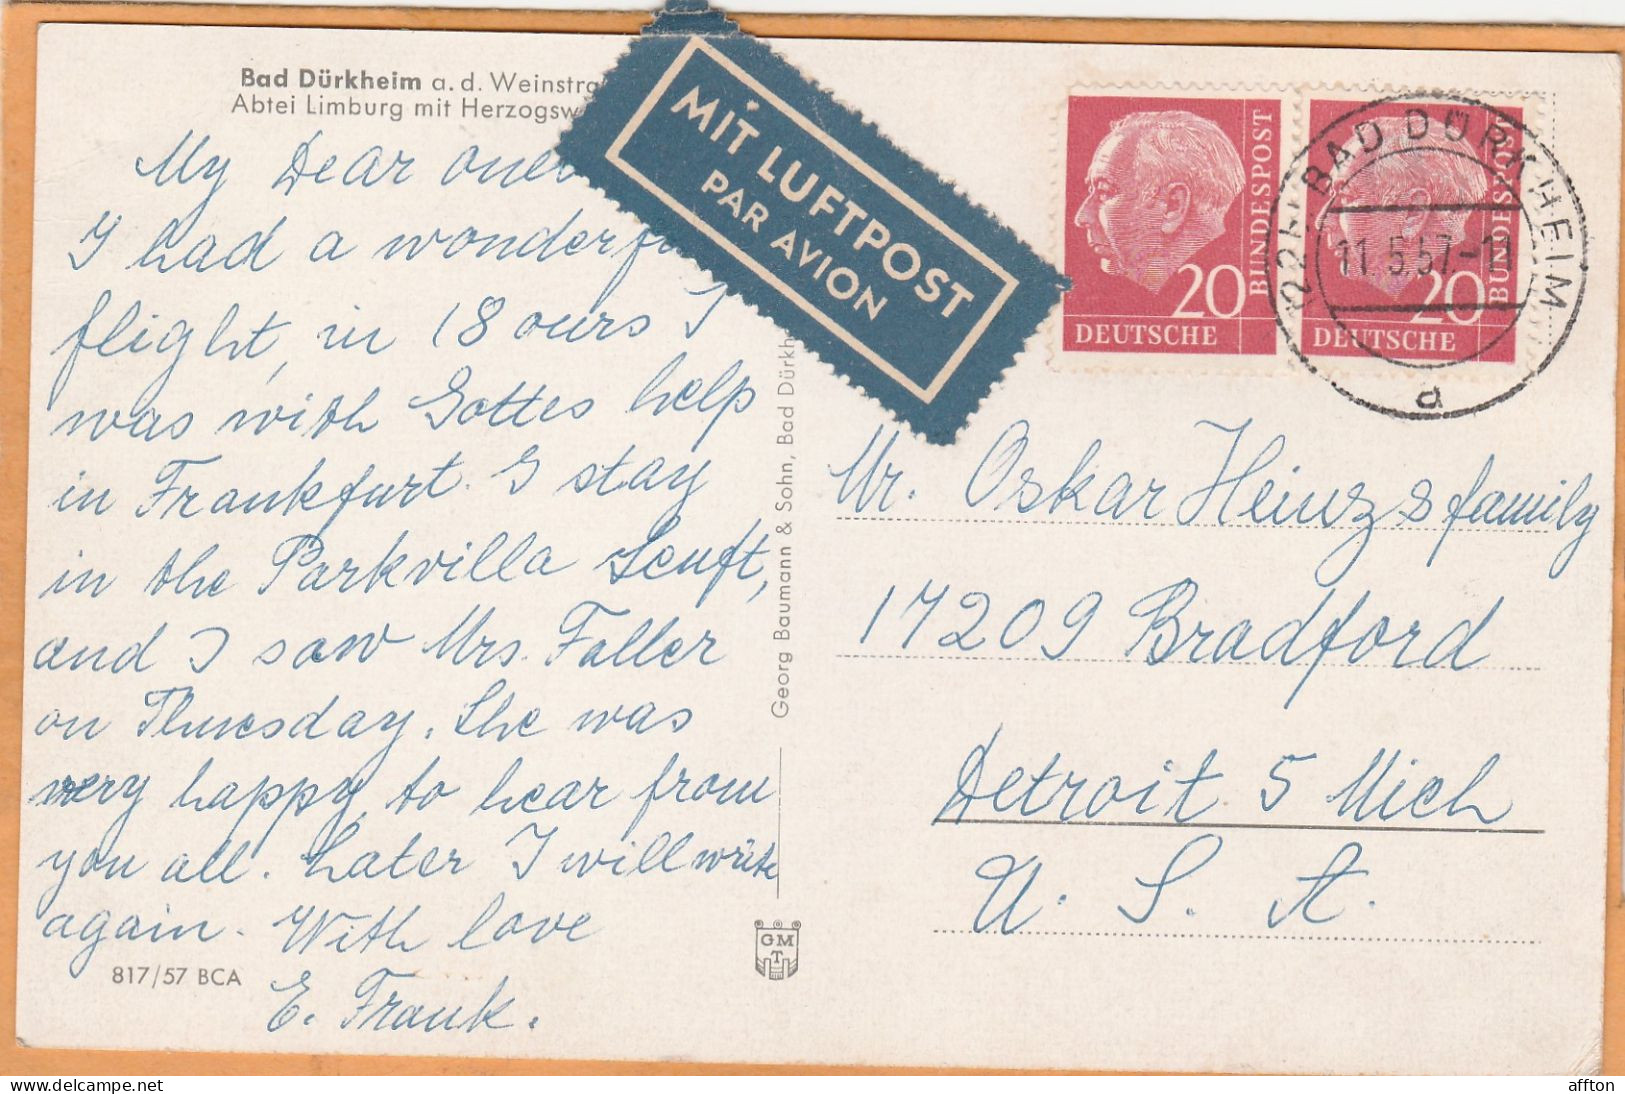 Bad Dürkheim a. d. Weinstra
Abtei Limburg mit Herzogsw
My Dear ones
I had a wonderfu
flight, in 18 ours I
was with Gottes help
in Frankfurt. I stay
in the Parkvilla Senft,
and I saw Mrs. Faller
on Thuesday. She was
very happy to hear from
you all. Later I will write
again. With love
E. Frank.
817/57 BCA
MIT LUFTPOST
PAR AVION
Georg Baumann & Sohn, Bad Dürkh
GMT
20
DEUTSCHE
BUNDESPOST
20
DEUTSCHE
BUNDESPOST
BAD DÜRKHEIM
11.5.57.-1
d
Mr. Oskar Heinz & family
17209 Bradford
Detroit 5 Mich
U. S. A.
www.delcampe.net
affton